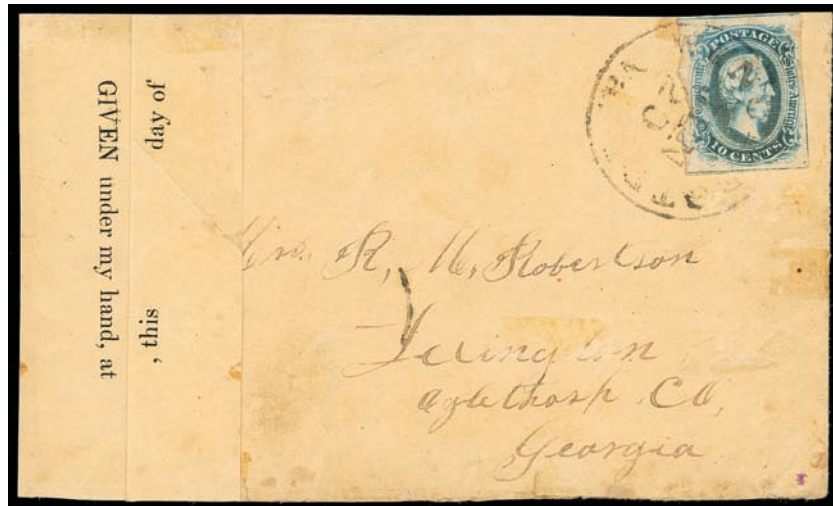 GIVEN under my hand, at
, this day of
POSTAGE
10 CENTS
Mrs. R, M, Robertson
Lexington
Oglethorp Co,
Georgia